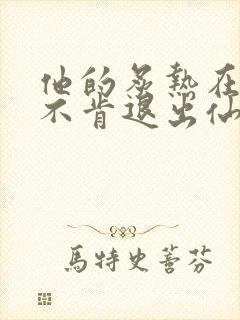 他的炙熱在
不肯退出仙
馬特史萫芬